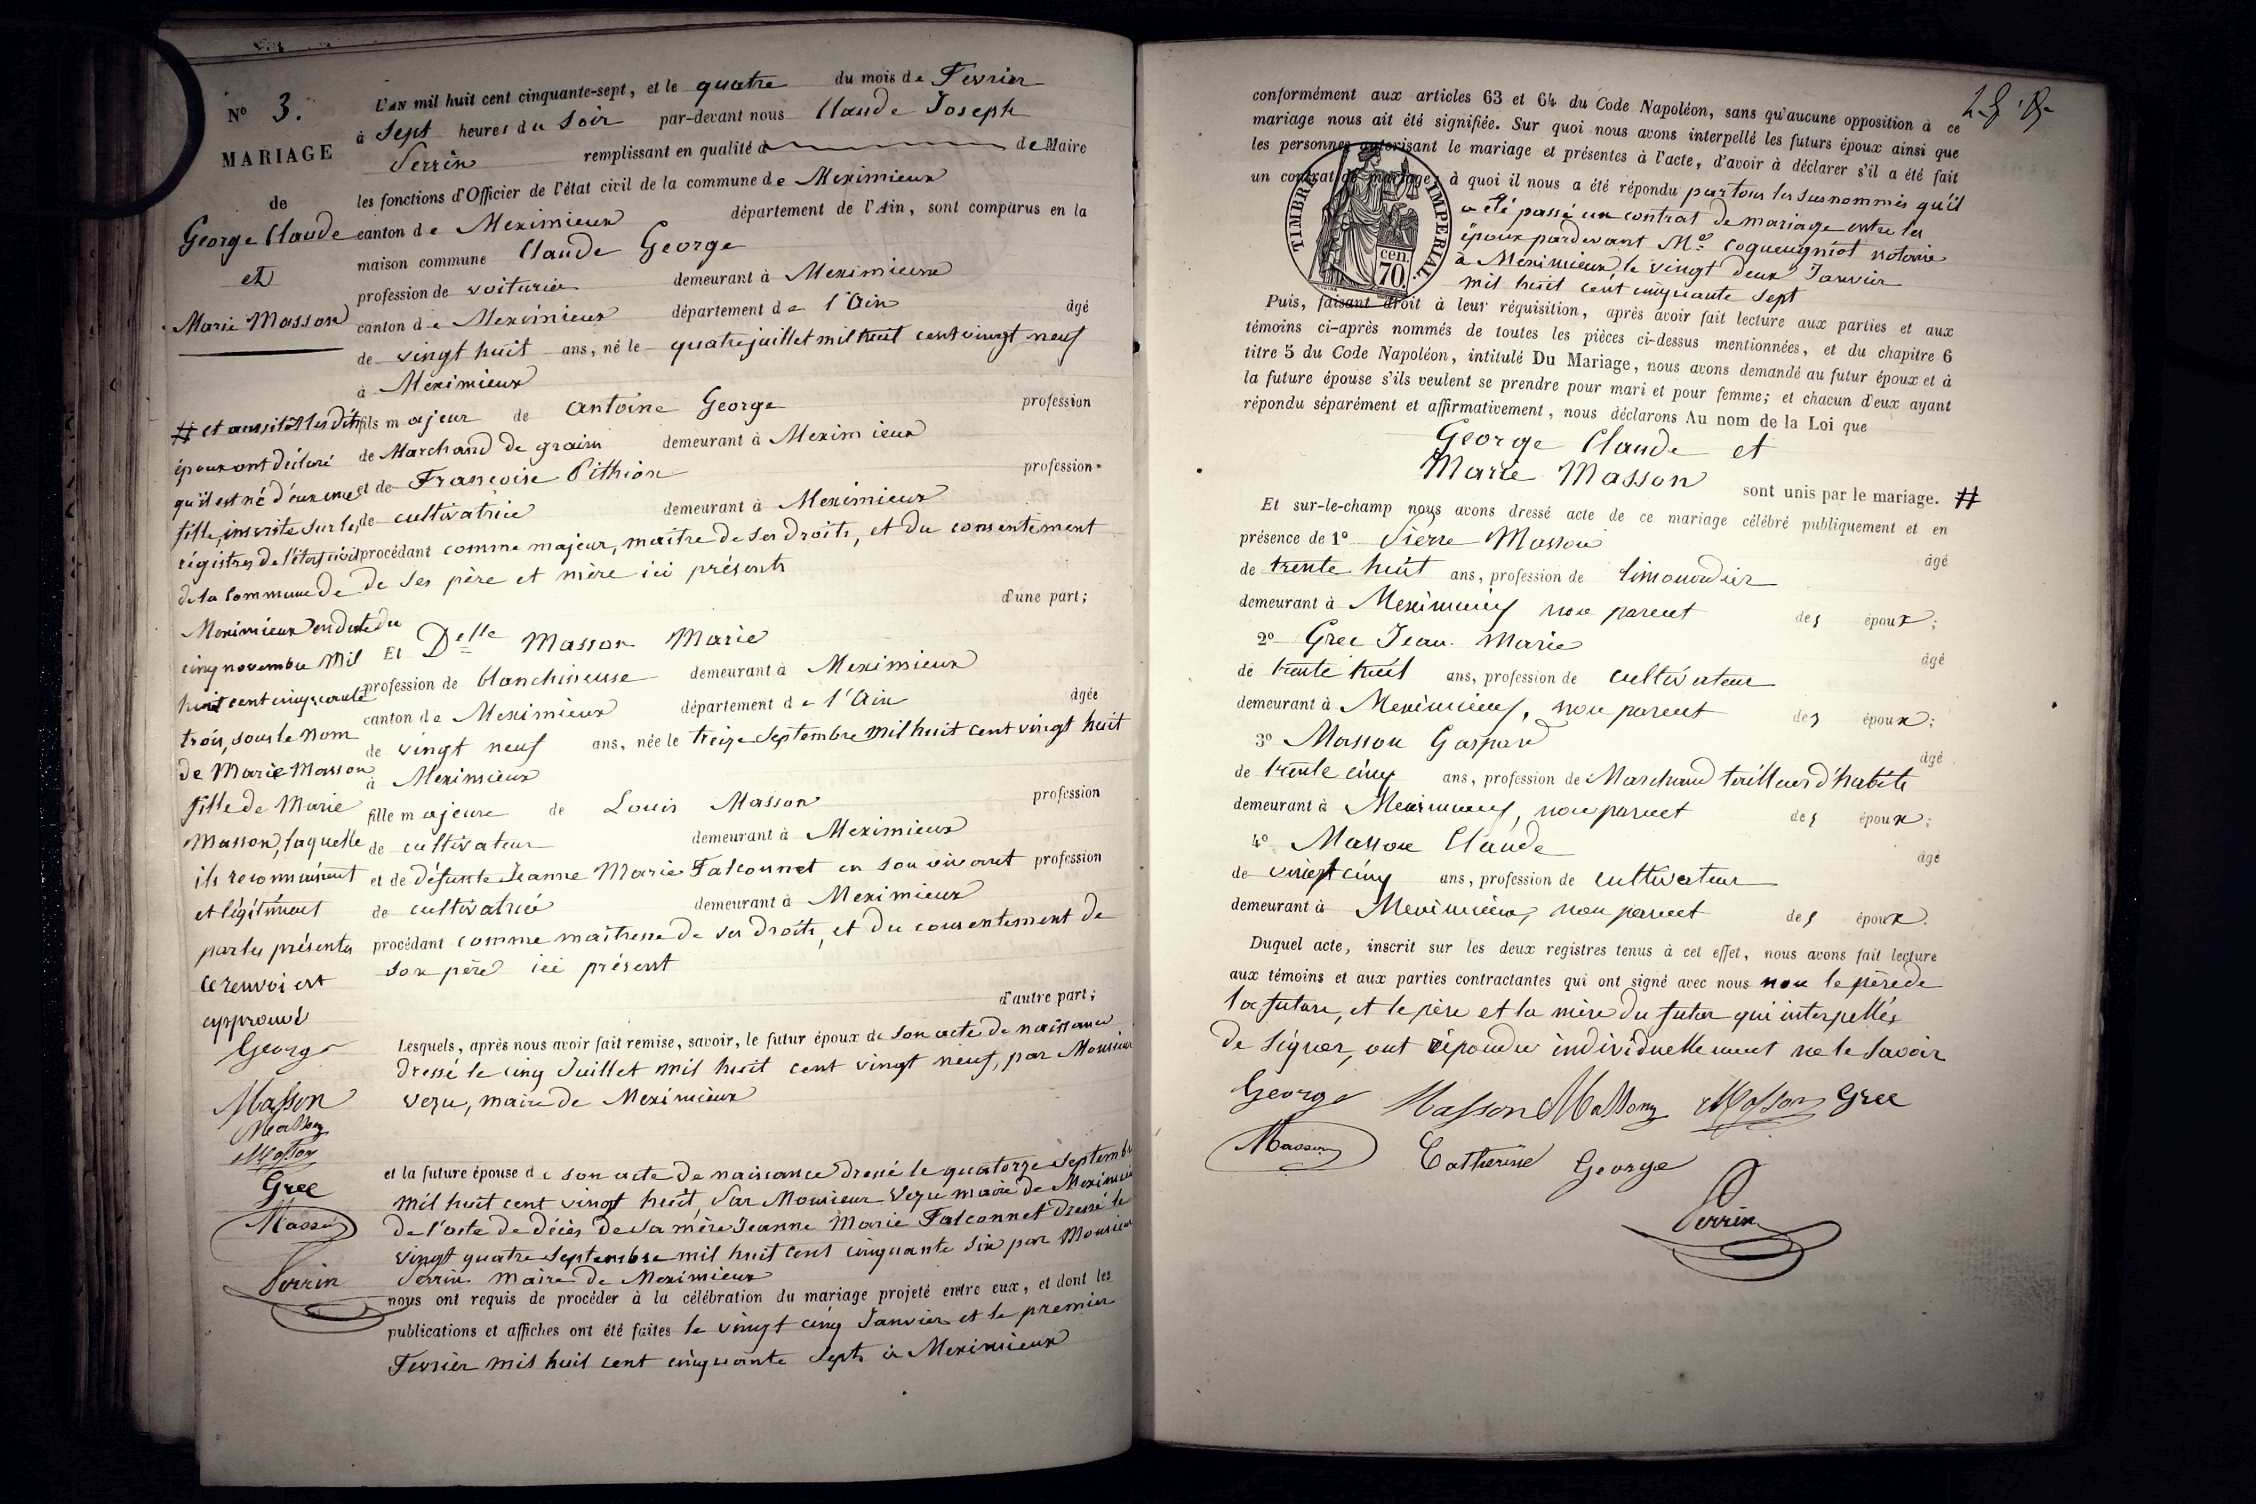 N° 3.
MARIAGE
de
George Claude
et
Marie Masson
# et aussitôt lesdits
époux ont déclaré
qu'il est né d'eux une
fille, inscrite sur les
régistres de l'état civil
de la Commune de
Meximieux en date du
cinq novembre Mil
huit cent cinquante
trois, sous le nom
de Marie Masson
fille de Marie
Masson, laquelle
ils reconnaissent
et légitiment
par les présentes
ce renvoi est
approuvé
George
Masson
Masson
Masson
Grec
Masson
Perrin
L'AN mil huit cent cinquante-sept, et le quatre du mois de Fevrier
à Sept heures du Soir par-devant nous Claude Joseph
Perrin remplissant en qualité d de Maire
les fonctions d'Officier de l'état civil de la commune de Meximieux
canton de Meximieux département de l'Ain, sont comparus en la
maison commune Claude George
profession de voiturier demeurant à Meximieux
canton de Meximieux département de l'Ain âgé
de vingt huit ans, né le quatre juillet mil huit cent vingt neuf
à Meximieux
fils majeur de Antoine George profession
de Marchand de grains demeurant à Meximieux
et de Françoise Pithion profession
de cultivatrice demeurant à Meximieux
procédant comme majeur, maître de ses droits, et du consentement
de ses père et mère ici présents
d'une part;
Et Delle Masson Marie
profession de blanchisseuse demeurant à Meximieux
canton de Meximieux département de l'Ain âgée
de vingt neuf ans, née le treize Septembre Mil huit cent vingt huit
à Meximieux
fille majeure de Louis Masson profession
de cultivateur demeurant à Meximieux
et de défunte Jeanne Marie Falconnet en son vivant profession
de cultivatrice demeurant à Meximieux
procédant comme maîtresse de ses droits, et du consentement de
son père ici présent
d'autre part;
Lesquels, après nous avoir fait remise, savoir, le futur époux de son acte de naissance
dressé le cinq Juillet mil huit cent vingt neuf, par Monsieur
Vezu, maire de Meximieux
et la future épouse de son acte de naissance dressé le quatorze Septembre
mil huit cent vingt huit, Par Monsieur Vezu maire de Meximieux
de l'acte de décès de sa mère Jeanne Marie Falconnet dressé le
vingt quatre Septembre mil huit cent cinquante six par Monsieur
Perrin maire de Meximieux
nous ont requis de procéder à la célébration du mariage projeté entre eux, et dont les
publications et affiches ont été faites le vingt cinq Janvier et le premier
Fevrier mil huit cent cinquante Sept à Meximieux
conformément aux articles 63 et 64 du Code Napoléon, sans qu'aucune opposition à ce
mariage nous ait été signifiée. Sur quoi nous avons interpellé les futurs époux ainsi que
les personnes autorisant le mariage et présentes à l'acte, d'avoir à déclarer s'il a été fait
un contrat de mariage, à quoi il nous a été répondu par tous les susnommés qu'il
a été passé un contrat de mariage entre les
époux pardevant Me Coqueugniot notaire
à Meximieux, le vingt deux Janvier
mil huit cent cinquante sept
TIMBRE IMPERIAL.
cen.
70.
Puis, faisant droit à leur réquisition, après avoir fait lecture aux parties et aux
témoins ci-après nommés de toutes les pièces ci-dessus mentionnées, et du chapitre 6
titre 5 du Code Napoléon, intitulé Du Mariage, nous avons demandé au futur époux et à
la future épouse s'ils veulent se prendre pour mari et pour femme; et chacun d'eux ayant
répondu séparément et affirmativement, nous déclarons Au nom de la Loi que
George Claude et
Marie Masson
sont unis par le mariage. #
Et sur-le-champ nous avons dressé acte de ce mariage célébré publiquement et en
présence de 1° Pierre Masson âgé
de trente huit ans, profession de limonadier
demeurant à Meximieux non parent des époux;
2° Grec Jean Marie âgé
de trente huit ans, profession de cultivateur
demeurant à Meximieux, non parent des époux;
3° Masson Gaspard âgé
de trente cinq ans, profession de Marchand tailleur d'habits
demeurant à Meximieux, non parent des époux;
4° Masson Claude âgé
de vingt cinq ans, profession de cultivateur
demeurant à Meximieux, non parent des époux.
Duquel acte, inscrit sur les deux registres tenus à cet effet, nous avons fait lecture
aux témoins et aux parties contractantes qui ont signé avec nous non le père de
la future, et le père et la mère du futur qui interpellés
de signer, ont répondu individuellement ne le savoir
George Masson Masson Masson Grec
Masson Catherine George
Perrin